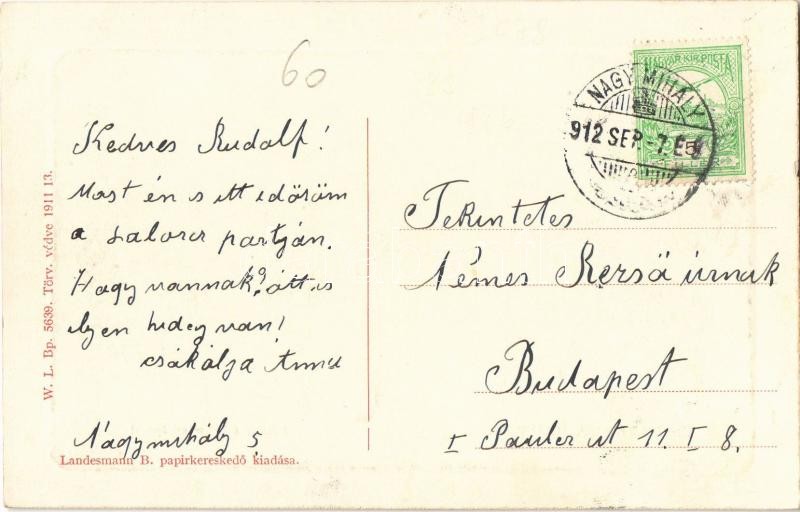 60
Kedves Rudolf!
Most én is itt időzöm
a Laborcz partján.
Hogy vannak? ott is
ilyen hideg van!
csókolja
Nagymihály 5
Landesmann B. papirkereskedő kiadása.
W. L. Bp. 5639. Törv. védve 1911 13.
MAGYAR KIR. POSTA
5
NAGYMIHÁLY
912 SEP. -7. E
Tekintetes
Némes úrnak
Budapest
I Pauler ut 11. I 8.